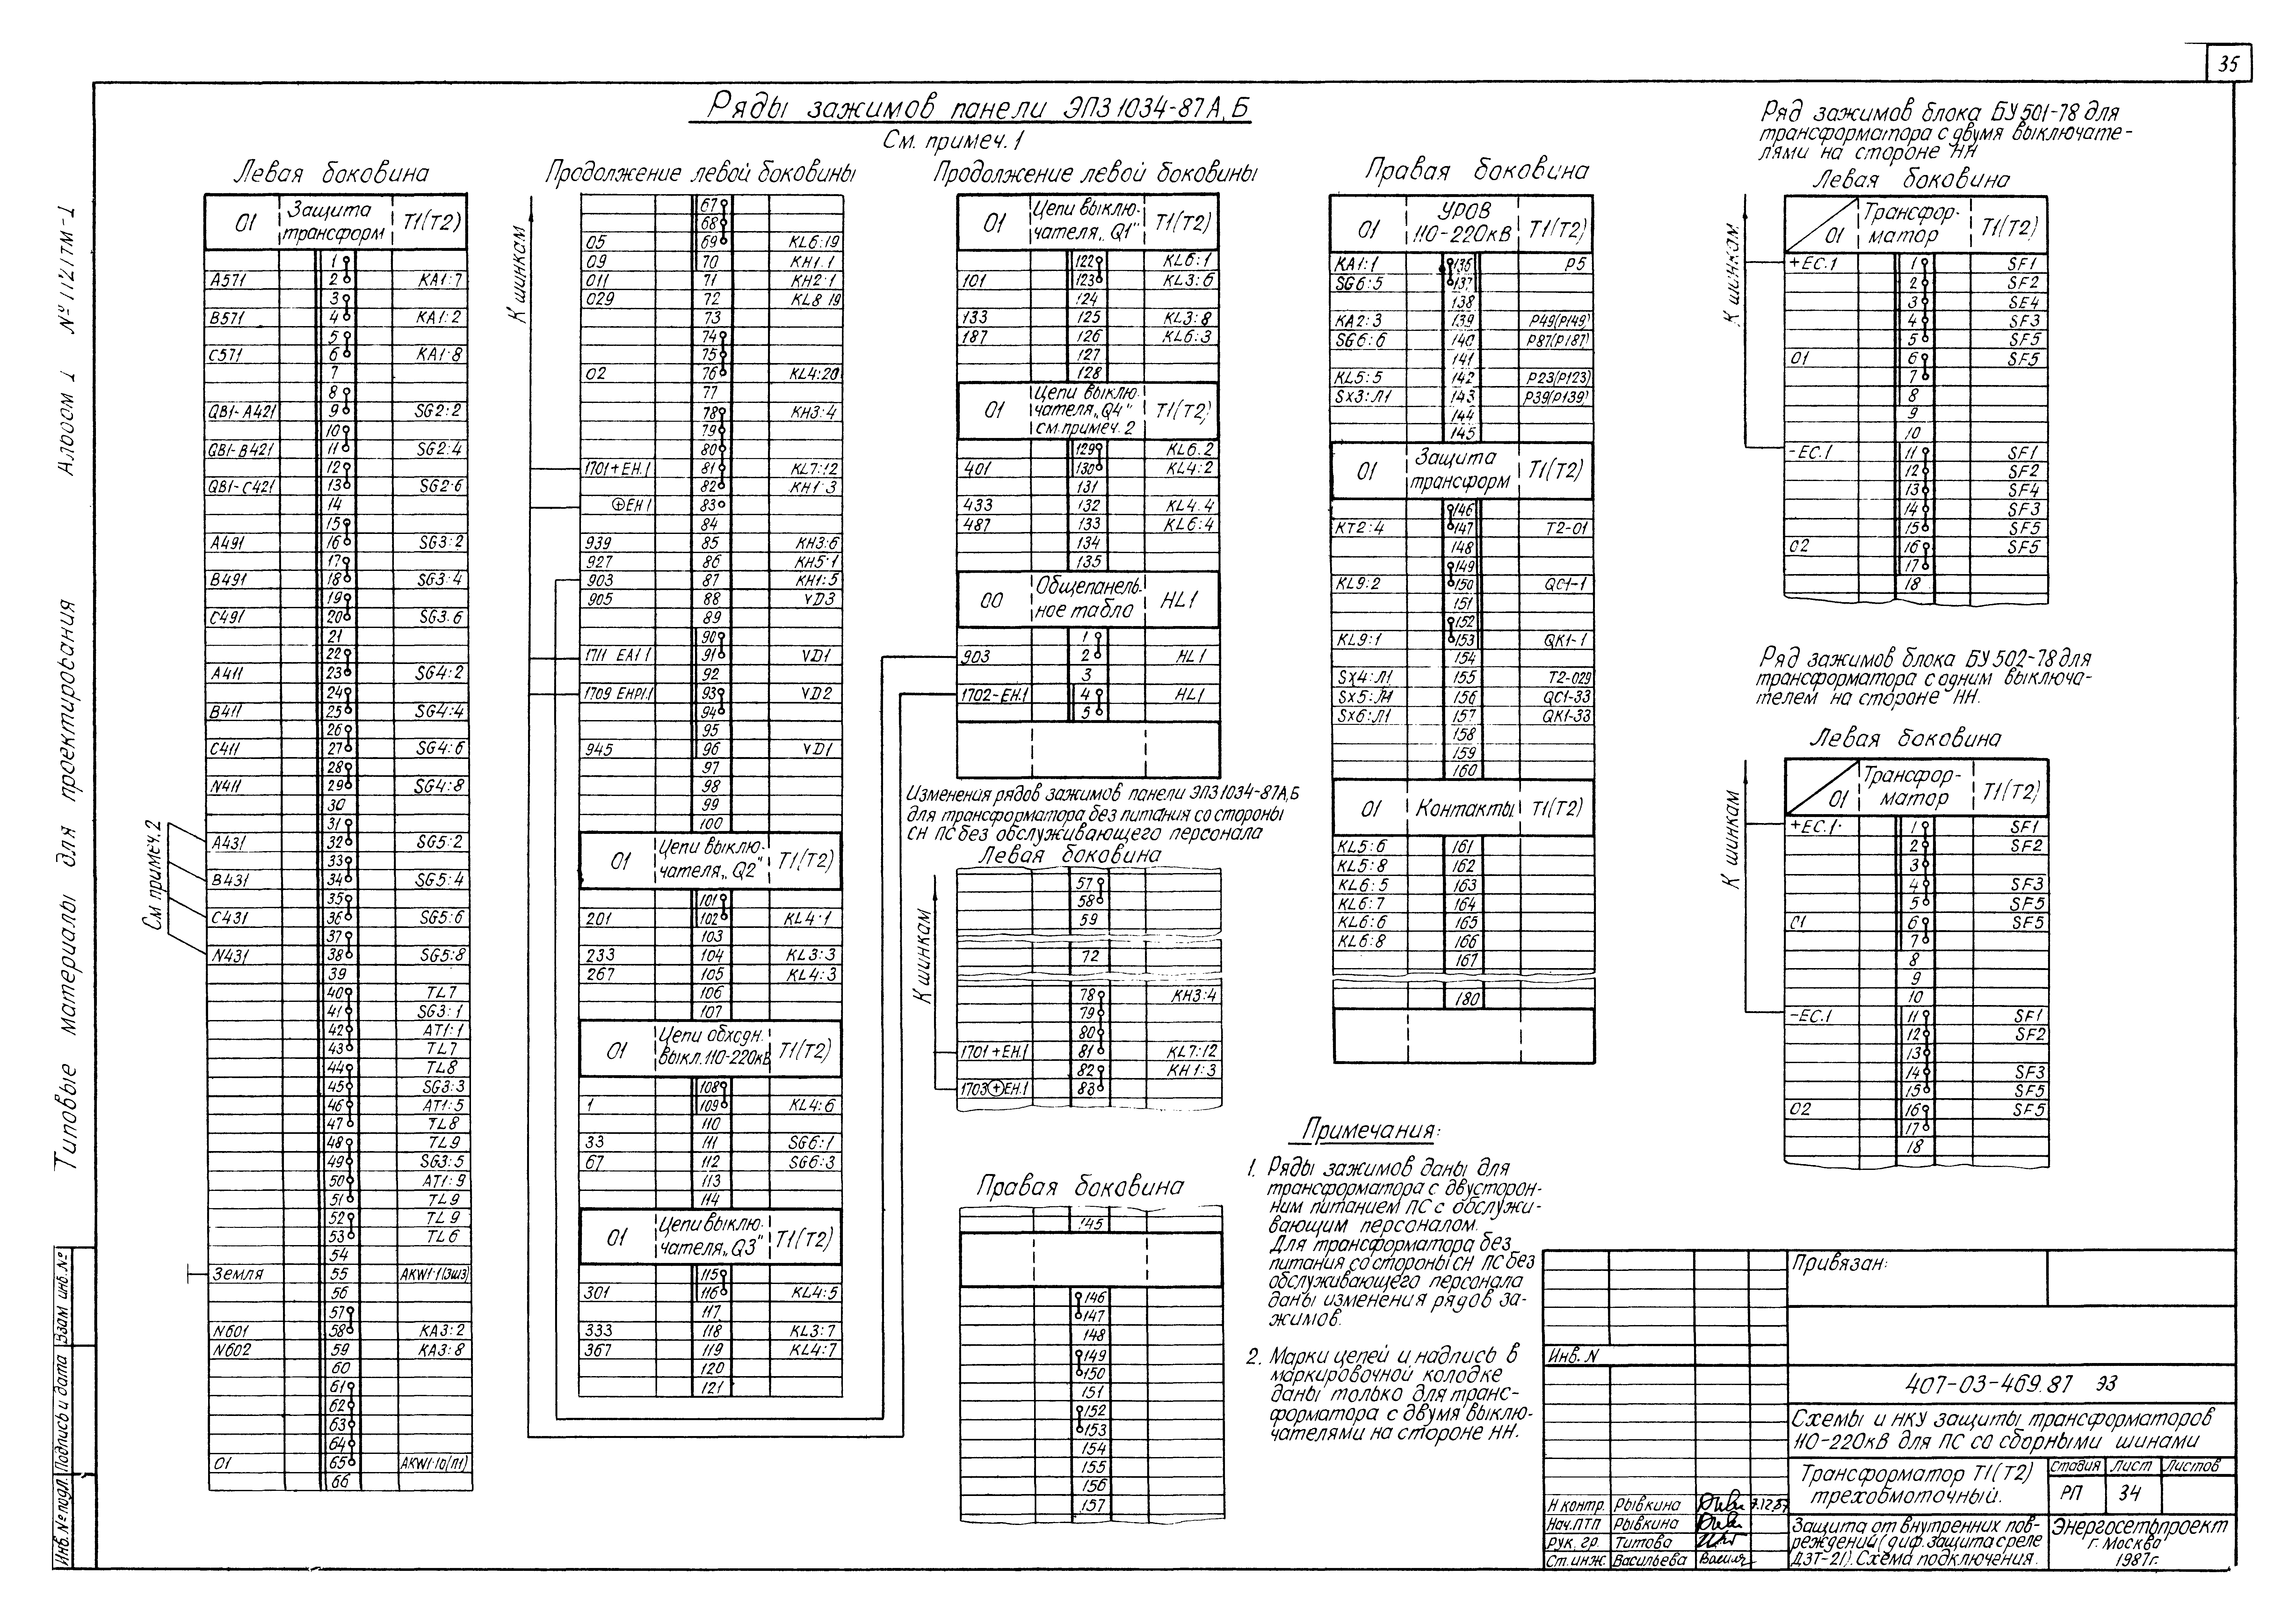 35
Ряды зажимов панели ЭПЗ 1034-87А,Б
См. примеч. 1
Типовые материалы для проектирования Альбом I № 1121ТМ-I
Левая боковина
01 Защита трансформ Т1(Т2)
1
А571 2 КА1:7
3
В571 4 КА1:2
5
С571 6 КА1:8
7
8
QB1-А421 9 SG2:2
10
QB1-В421 11 SG2:4
12
QB1-С421 13 SG2:6
14
15
А491 16 SG3:2
17
В491 18 SG3:4
19
С491 20 SG3.6
21
22
А411 23 SG4:2
24
В411 25 SG4:4
26
С411 27 SG4:6
28
N411 29 SG4:8
30
31
См примеч.2
А431 32 SG5:2
33
В431 34 SG5:4
35
С431 36 SG5:6
37
N431 38 SG5:8
39
40 TL7
41 SG3:1
42 АТ1:1
43 TL7
44 TL8
45 SG3:3
46 АТ1:5
47 TL8
48 TL9
49 SG3:5
50 АТ1:9
51 TL9
52 TL9
53 TL6
54
Земля 55 AKW1:1(ЭШ3)
56
57
N601 58 КА3:2
N602 59 КА3:8
60
61
62
63
64
01 65 AKW1:10(П1)
66
Продолжение левой боковины
К шинкам
67
68
05 69 KL6:19
09 70 КН1:1
011 71 КН2:1
029 72 KL8 19
73
74
75
02 76 KL4:20
77
78 КН3:4
79
80
1701+ЕН.1 81 KL7:12
82 КН1:3
⊕ЕН1 83
84
939 85 КН3:6
927 86 КН5:1
903 87 КН1:5
905 88 VD3
89
90
1711 ЕА1 1 91 VD1
92
1709 ЕНР1.1 93 VD2
94
95
945 96 VD1
97
98
99
100
01 Цепи выключателя „Q2" Т1(Т2)
101
201 102 KL4:1
103
233 104 KL3:3
267 105 KL4:3
106
107
01 Цепи обходн. выкл. 110-220кВ Т1(Т2)
108
1 109 KL4:6
110
33 111 SG6:1
67 112 SG6:3
113
114
01 Цепи выключателя „Q3" Т1(Т2)
115
301 116 KL4:5
117
333 118 KL3:7
367 119 KL4:7
120
121
Продолжение левой боковины
01 Цепи выключателя „Q1" Т1(Т2)
122 KL6:1
101 123 KL3:6
124
133 125 KL3:8
187 126 KL6:3
127
128
01 Цепи выключателя „Q4" см.примеч. 2 Т1(Т2)
129 KL6.2
401 130 KL4:2
131
433 132 KL4.4
487 133 KL6:4
134
135
00 Общепанельное табло HL1
1
903 2 HL1
3
1702-ЕН.1 4 HL1
5
Изменения рядов зажимов панели ЭПЗ1034-87А,Б
для трансформатора без питания со стороны
СН ПС без обслуживающего персонала
Левая боковина
К шинкам
57
58
59
72
78 КН3:4
79
80
1701+ЕН.1 81 KL7:12
82 КН1:3
1703⊕ЕН.1 83
Правая боковина
145
146
147
148
149
150
151
152
153
154
155
156
157
Правая боковина
01 УРОВ 110-220кВ Т1(Т2)
КА1:1 136 Р5
SG6:5 137
138
КА2:3 139 Р49(Р149)
SG6:6 140 Р87(Р187)
141
KL5:5 142 Р23(Р123)
SX3:Л1 143 Р39(Р139)
144
145
01 Защита трансформ Т1(Т2)
146
КТ2:4 147 Т2-01
148
149
KL9:2 150 QC1-1
151
152
KL9:1 153 QK1-1
154
SX4:Л1 155 Т2-029
SX5:Л1 156 QC1-33
SX6:Л1 157 QK1-33
158
159
160
01 Контакты Т1(Т2)
KL5:6 161
KL5:8 162
KL6:5 163
KL6:7 164
KL6:6 165
KL6:8 166
167
180
Примечания:
1. Ряды зажимов даны для
трансформатора с двусторон-
ним питанием ПС с обслужи-
вающим персоналом.
Для трансформатора без
питания со стороны СН ПС без
обслуживающего персонала
даны изменения рядов за-
жимов.
2. Марки цепей и надпись в
маркировочной колодке
даны только для транс-
форматора с двумя выклю-
чателями на стороне НН.
Ряд зажимов блока БУ 501-78 для
трансформатора с двумя выключате-
лями на стороне НН
Левая боковина
К шинкам
01 Трансформатор Т1(Т2)
+ЕС.1 1 SF1
2 SF2
3 SF4
4 SF3
5 SF5
01 6 SF5
7
8
9
10
-ЕС.1 11 SF1
12 SF2
13 SF4
14 SF3
15 SF5
02 16 SF5
17
18
Ряд зажимов блока БУ 502-78 для
трансформатора с одним выключа-
телем на стороне НН.
Левая боковина
К шинкам
01 Трансформатор Т1(Т2)
+ЕС.1 1 SF1
2 SF2
3
4 SF3
5 SF5
01 6 SF5
7
8
9
10
-ЕС.1 11 SF1
12 SF2
13
14 SF3
15 SF5
02 16 SF5
17
18
Привязан:
Инв. N
407-03-469.87 ЭЗ
Схемы и НКУ защиты трансформаторов
110-220кВ для ПС со сборными шинами
Трансформатор Т1(Т2)
трехобмоточный.
Стадия Лист Листов
РП 34
Защита от внутренних пов-
реждений (диф. защита с реле
ДЗТ-21). Схема подключения.
Энергосетьпроект
г. Москва
1987г.
Н контр. Рывкина
Нач.ПТП Рывкина
Рук. гр. Титова
Ст.инж. Васильева
Инв.№ подл. Подпись и дата Взам инв.№